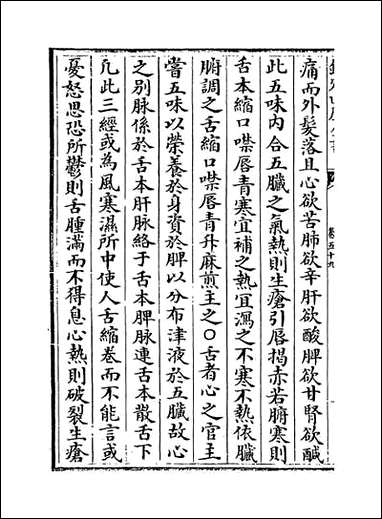 卷五十九
痛而外髮落且心欲苦肺欲辛肝欲酸脾欲甘腎欲鹹
此五味内合五臟之氣熱則生瘡引唇揭赤若腑寒則
舌本縮口噤唇青寒宜補之熱宜瀉之不寒不熱依臟
腑調之舌縮口噤唇青升麻煎主之○舌者心之官主
嘗五味以榮養於身資於脾以分布津液於五臟故心
之别脉係於舌本肝脉絡于舌本脾脉連舌本散舌下
凡此三經或為風寒濕所中使人舌縮卷而不能言或
憂怒思恐所鬱則舌腫滿而不得息心熱則破裂生瘡